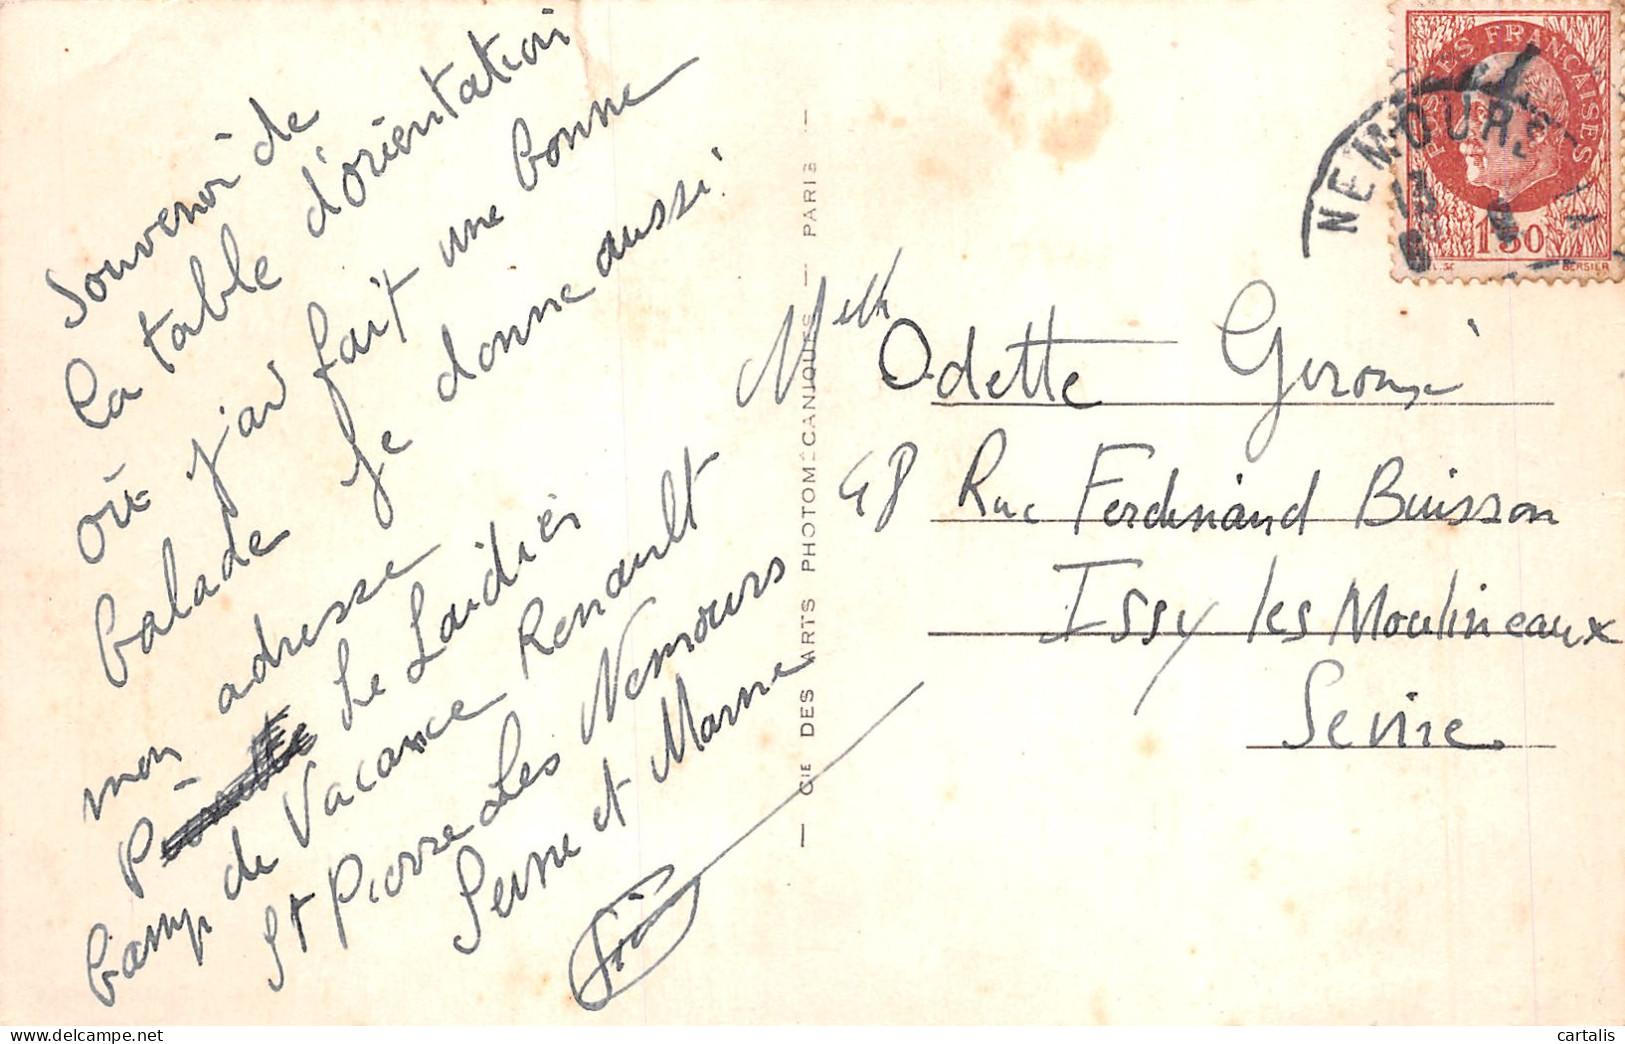 Souvenir de
la table d'orientation
où j'ai fait une bonne
balade je donne aussi
mon adresse
Le Laidier
Camp de Vacance Renault
St Pierre Les Nemours
Seine et Marne
— CIE DES ARTS PHOTOMÉCANIQUES — PARIS —
Melle
Odette
48 Rue Ferdinand Buisson
Issy les Moulineaux
Seine
POSTES FRANÇAISES
1F50
BERSIER
NEMOURS
13
cartalis